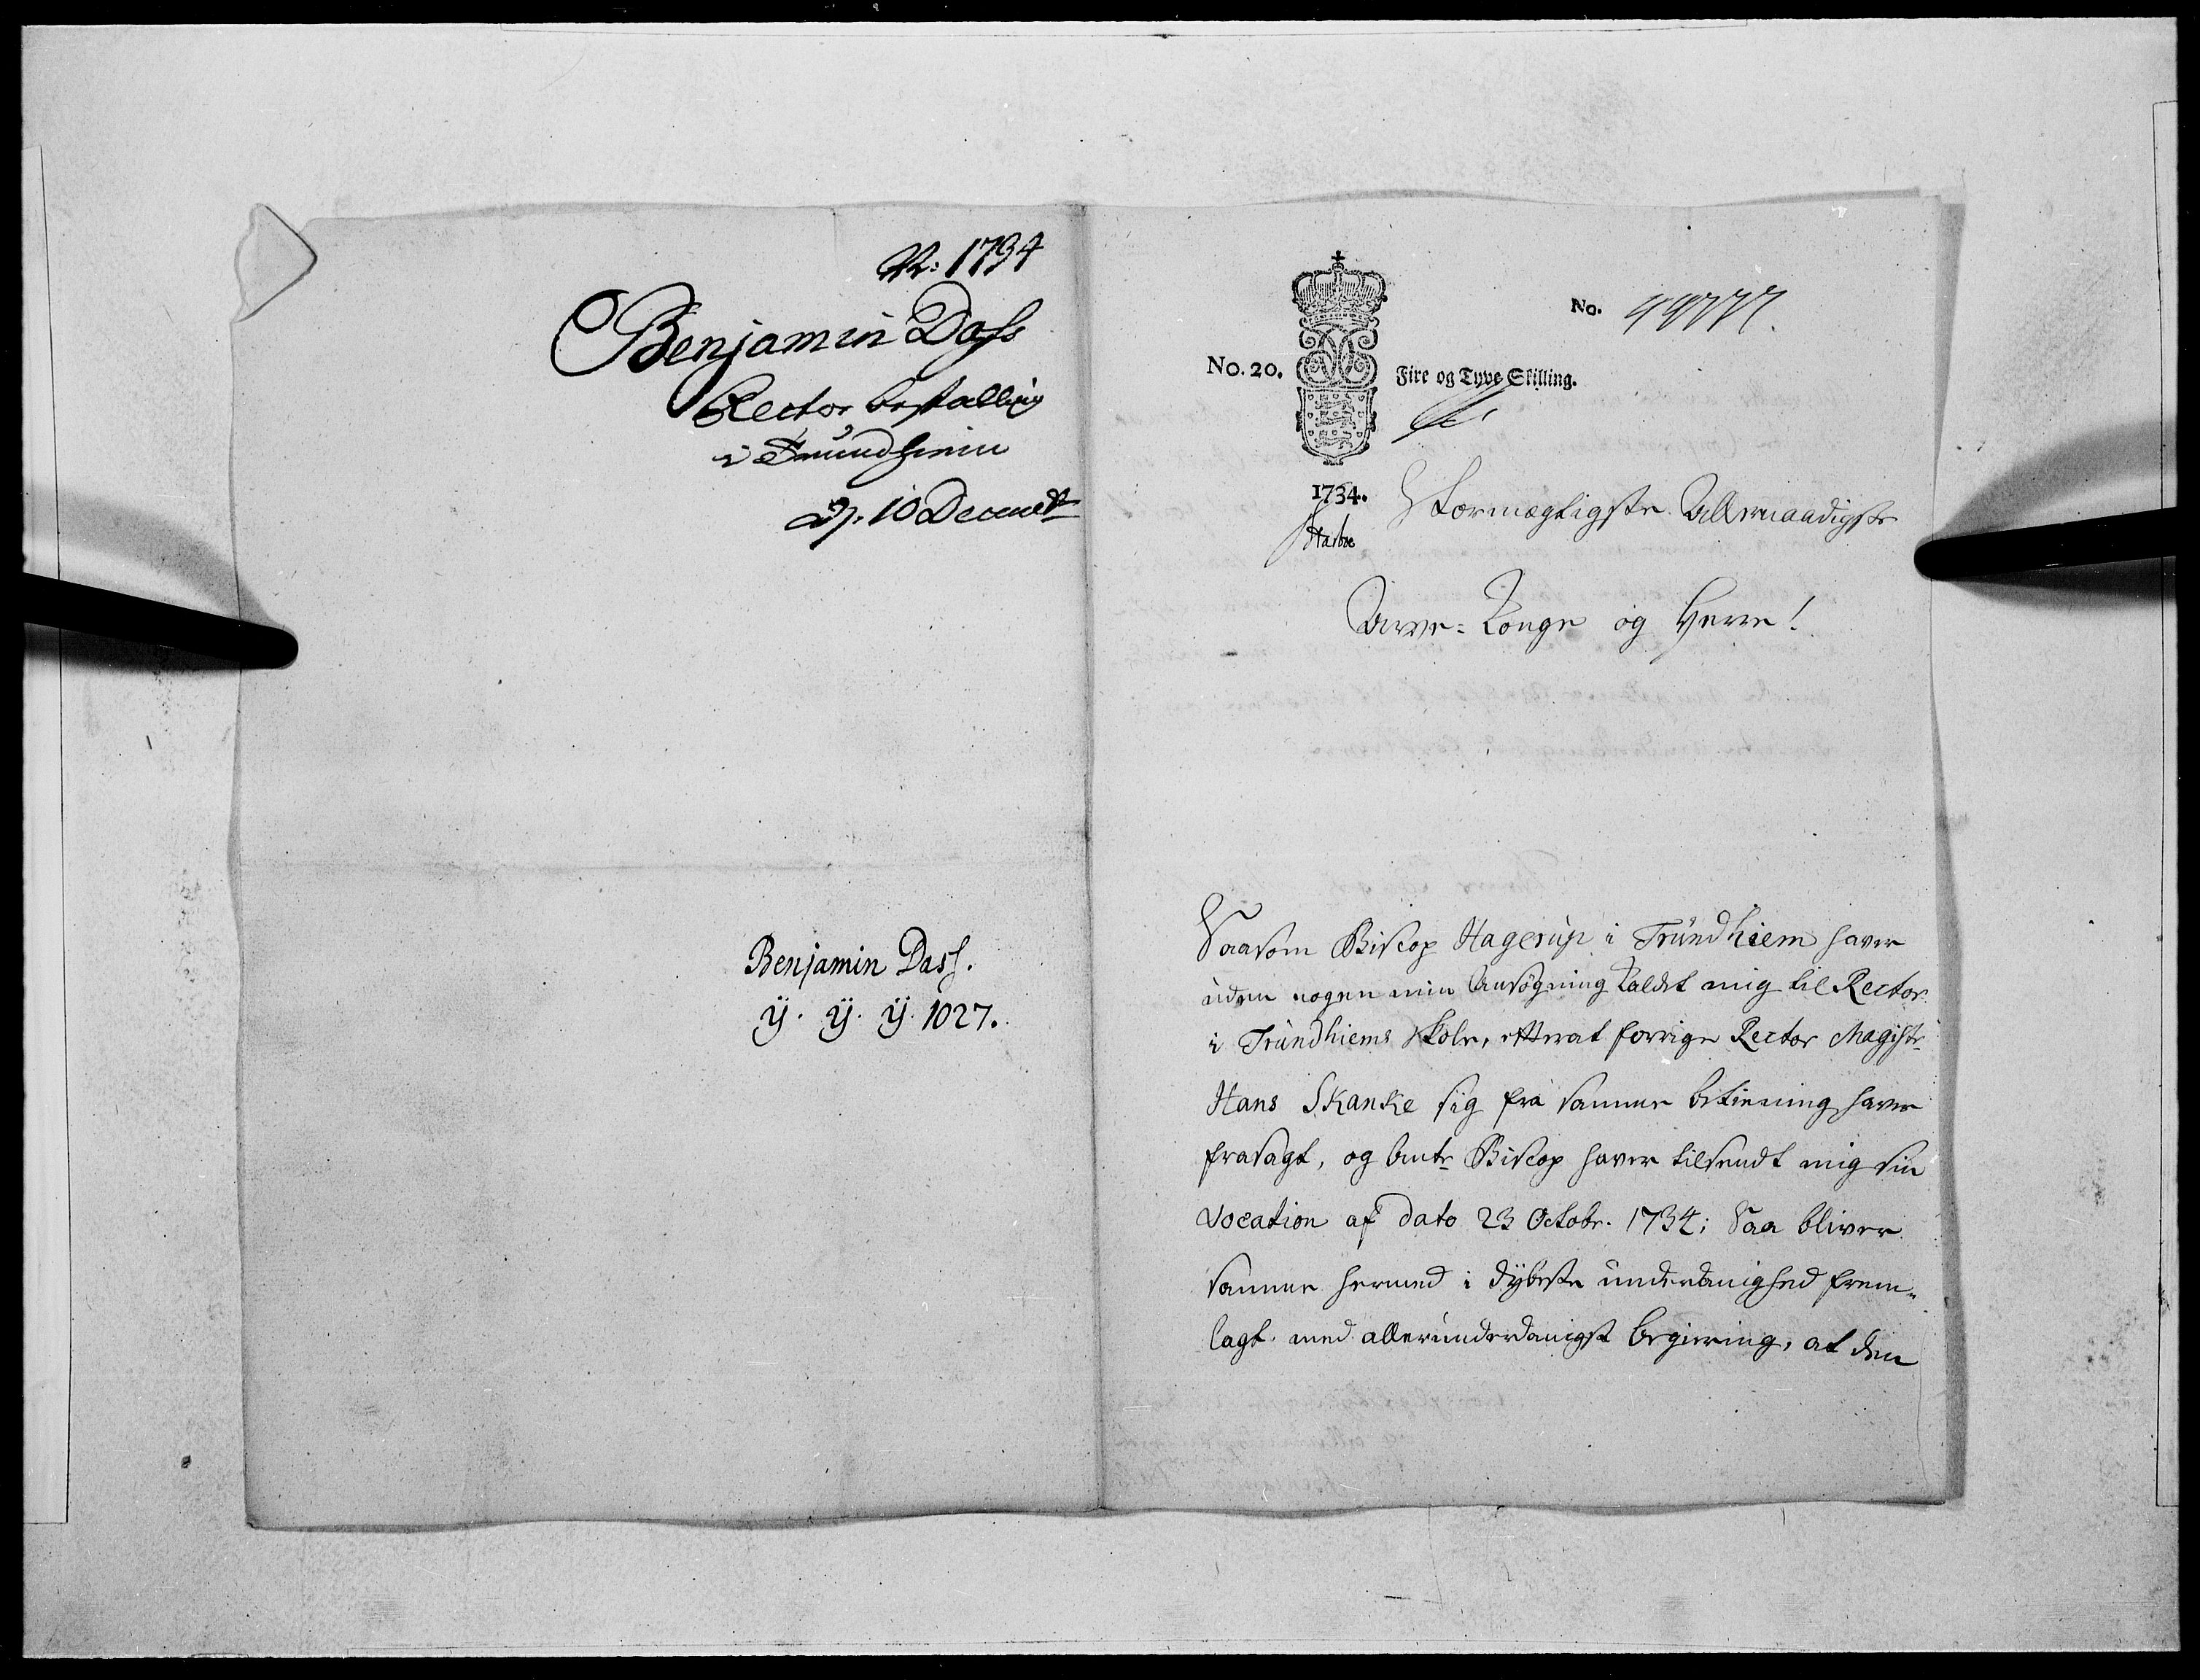 No: 1734
Benjamin Dass
Rector bestalling
i Trundhiem
D. 10 Decembr
Benjamin Dass.
ÿ. ÿ. ÿ. 1027.
No.
No. 20.
Fire og Tyve Skilling.
1734.
Stormægtigste Allernaadigste
Arve-Konge og Herre!
Saasom Biskop Hagerup i Trundhiem haver
uden nogen min Ansøgning kaldet mig til Rector
i Trundhiems Skole, etterat forrige Rector Magistr
Hans Skanke sig fra samme betiening haver
frasagt, og bemte Biskop haver tilsendt mig sin
Vocation af dato 23 Octobr. 1734; Saa bliver
samme hermed i dybeste underdanighed frem-
lagt med allerunderdanigst begiering, at den